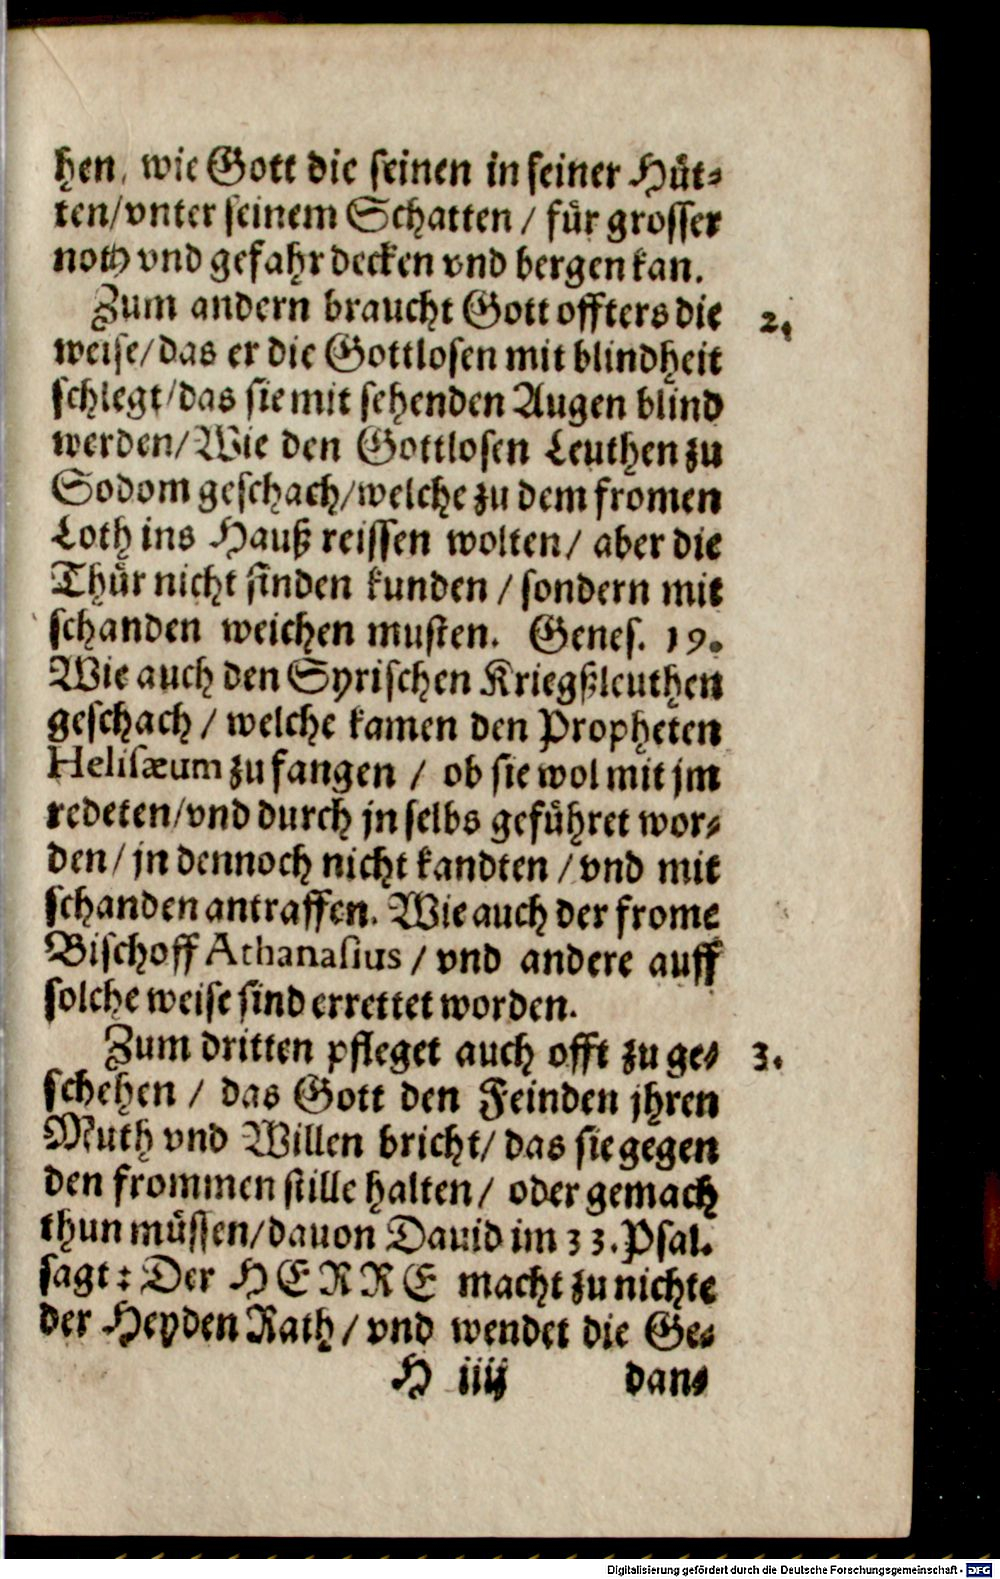 hen, wie Gott die seinen in seiner Hüt-
ten/vnter seinem Schatten / für grosser
noth vnd gefahr decken vnd bergen kan.
Zum andern braucht Gott offters die 2.
weise/das er die Gottlosen mit blindheit
schlegt/das sie mit sehenden Augen blind
werden/Wie den Gottlosen Leuthen zu
Sodom geschach/welche zu dem fromen
Loth ins Hauß reissen wolten/ aber die
Thür nicht finden kunden / sondern mit
schanden weichen musten. Genes. 19.
Wie auch den Syrischen Kriegßleuthen
geschach / welche kamen den Propheten
Helisæum zu fangen / ob sie wol mit jm
redeten/vnd durch jn selbs geführet wor-
den/ jn dennoch nicht kandten / vnd mit
schanden antraffen. Wie auch der frome
Bischoff Athanasius / vnd andere auff
solche weise sind errettet worden.
Zum dritten pfleget auch offt zu ge- 3.
schehen / das Gott den Feinden jhren
Muth vnd Willen bricht/ das sie gegen
den frommen stille halten/ oder gemach
thun müssen/dauon Dauid im 33. Psal.
sagt: Der HERRE macht zu nichte
der Heyden Rath/ vnd wendet die Ge-
H iiij dan-
Digitalisierung gefördert durch die Deutsche Forschungsgemeinschaft - DFG